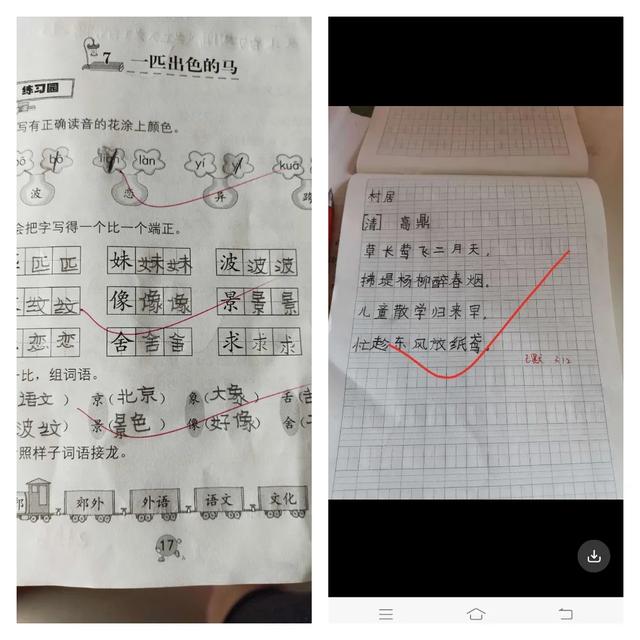 7 一匹出色的马
练习园
写有正确读音的花涂上颜色。
bō liàn làn yí yì kuā
波 恋 异
会把字写得一个比一个端正。
匹 匹 妹 妹 妹 波 波 波
纹 纹 像 像 像 景 景 景
恋 恋 舍 舍 舍 求 求 求
比，组词语。
语文） 京（北京） 象（大象） 舌（
波纹） 景（景色） 像（好像） 舍（
照样子词语接龙。
郊外 外语 语文 文化
17
村居
[清] 高鼎
草长莺飞二月天，
拂堤杨柳醉春烟。
儿童散学归来早，
忙趁东风放纸鸢。